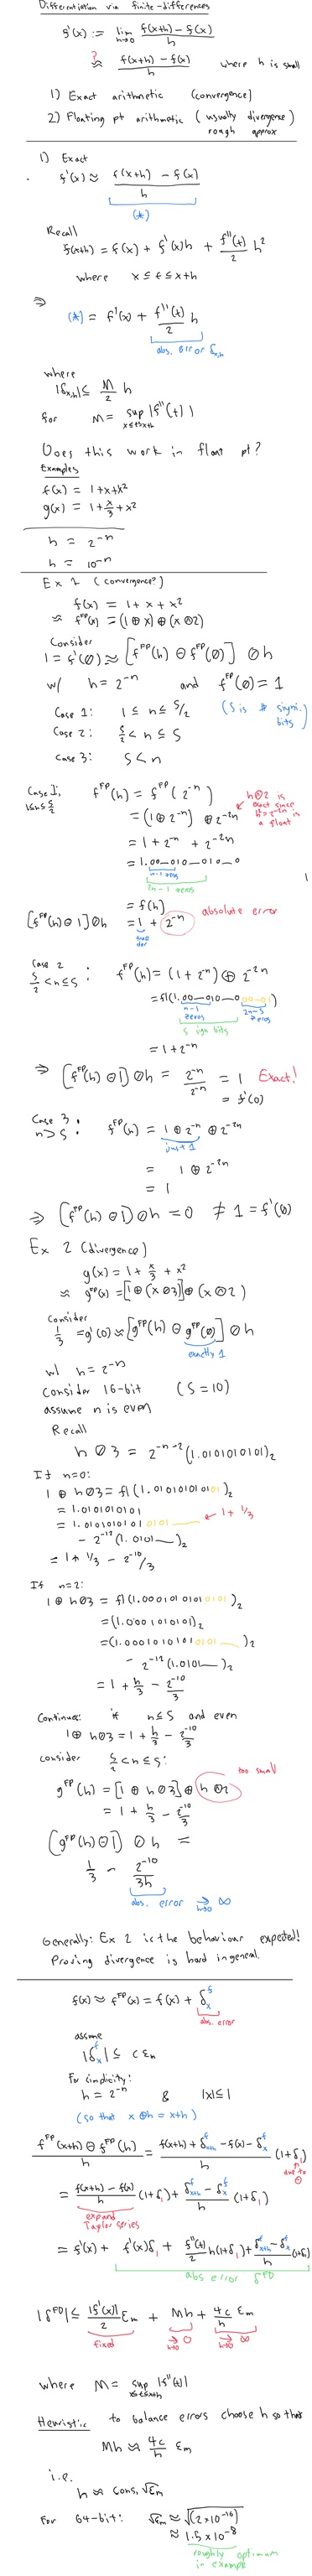 Differentiation via finite-differences
f'(x) := lim h→0 f(x+h) - f(x) / h
? ≈ f(x+h) - f(x) / h where h is small
1) Exact arithmetic (convergence)
2) Floating pt arithmetic (usually divergence)
rough approx
1) Exact
f'(x) ≈ f(x+h) - f(x) / h
(*)
Recall
f(x+h) = f(x) + f'(x)h + f''(t)/2 h²
where x ≤ t ≤ x+h
⇒
(*) = f'(x) + f''(t)/2 h
abs. error δx,h
where
|δx,h| ≤ M/2 h
for M = sup x≤t≤x+h |f''(t)|
Does this work in float pt?
Examples
f(x) = 1+x+x²
g(x) = 1+x/3+x²
h = 2⁻ⁿ
h = 10⁻ⁿ
Ex 1 (convergence?)
f(x) = 1 + x + x²
≈ fᶠᴾ(x) = (1 ⊕ x) ⊕ (x ⊗ 2)
Consider
1 = f'(0) ≈ [fᶠᴾ(h) ⊖ fᶠᴾ(0)] ⊘ h
w/ h = 2⁻ⁿ and fᶠᴾ(0) = 1
Case 1: 1 ≤ n ≤ S/2 (S is # signi. bits)
Case 2: S/2 < n ≤ S
Case 3: S < n
Case 1: 1≤n≤S/2 fᶠᴾ(h) = fᶠᴾ(2⁻ⁿ)
h⊗2 is exact since h²=2⁻²ⁿ is a float
= (1 ⊕ 2⁻ⁿ) ⊕ 2⁻²ⁿ
= 1 + 2⁻ⁿ + 2⁻²ⁿ
= 1.00—010—010—0
n-1 zeros
2n-1 zeros
= f(h)
[fᶠᴾ(h) ⊖ 1] ⊘ h = 1 + 2⁻ⁿ absolute error
true der
Case 2 S/2 < n ≤ S : fᶠᴾ(h) = (1 + 2⁻ⁿ) ⊕ 2⁻²ⁿ
= fl(1.00—010—000—01)
n-1 zeros 2n-S zeros
S sign bits
= 1+2⁻ⁿ
⇒ [fᶠᴾ(h) ⊖ 1] ⊘ h = 2⁻ⁿ/2⁻ⁿ = 1 Exact!
= f'(0)
Case 3 n > S : fᶠᴾ(h) = 1 ⊕ 2⁻ⁿ ⊕ 2⁻²ⁿ
just 1
= 1 ⊕ 2⁻²ⁿ
= 1
⇒ [fᶠᴾ(h) ⊖ 1] ⊘ h = 0 ≠ 1 = f'(0)
Ex 2 (divergence)
g(x) = 1 + x/3 + x²
≈ gᶠᴾ(x) = [1 ⊕ (x ⊘ 3)] ⊕ (x ⊗ 2)
Consider
1/3 = g'(0) ≈ [gᶠᴾ(h) ⊖ gᶠᴾ(0)] ⊘ h
exactly 1
w/ h = 2⁻ⁿ
Consider 16-bit (S = 10)
assume n is even
Recall
h ⊘ 3 = 2⁻ⁿ⁻² (1.0101010101)₂
If n=0:
1 ⊕ h⊘3 = fl(1.010101010101)₂
= 1.0101010101
= 1.0101010101 0101— ← 1 + 1/3
- 2⁻¹²(1.0101—)₂
= 1 + 1/3 - 2⁻¹⁰/3
If n=2:
1 ⊕ h⊘3 = fl(1.00010101010101)₂
= (1.0001010101)₂
= (1.0001010101 0101—)₂
- 2⁻¹²(1.0101—)₂
= 1 + h/3 - 2⁻¹⁰/3
Continues: if n≤S and even
1 ⊕ h⊘3 = 1 + h/3 - 2⁻¹⁰/3
consider S/2 < n ≤ S:
too small
gᶠᴾ(h) = [1 ⊕ h⊘3] ⊕ h ⊗ 2
= 1 + h/3 - 2⁻¹⁰/3
[gᶠᴾ(h) ⊖ 1] ⊘ h =
1/3 - 2⁻¹⁰/3h
abs. error → h→0 ∞
Generally: Ex 2 is the behaviour expected!
Proving divergence is hard in general.
f(x) ≈ fᶠᴾ(x) = f(x) + δₓᶠ
abs. error
assume
|δₓᶠ| ≤ c εₘ
For simplicity:
h = 2⁻ⁿ & |x| ≤ 1
(so that x ⊕ h = x+h)
fᶠᴾ(x+h) ⊖ fᶠᴾ(h) / h = f(x+h) + δᶠₓ₊ₕ - f(x) - δᶠₓ / h (1+δ₁)
due to ⊖
= f(x+h) - f(x) / h (1+δ₁) + δᶠₓ₊ₕ - δᶠₓ / h (1+δ₁)
expand Taylor series
= f'(x) + f'(x)δ₁ + f''(t)/2 h(1+δ₁) + δᶠₓ₊ₕ - δᶠₓ / h (1+δ₁)
abs error δᶠᴰ
|δᶠᴰ| ≤ |f'(x)|/2 εₘ + Mh + 4c/h εₘ
fixed → h→0 0 → h→0 ∞
where M = sup x≤t≤x+h |f''(t)|
Heuristic to balance errors choose h so that
Mh ≈ 4c/h εₘ
i.e.
h ≈ cons. √εₘ
For 64-bit: √εₘ ≈ √(2×10⁻¹⁶)
≈ 1.5×10⁻⁸
roughly optimum in example